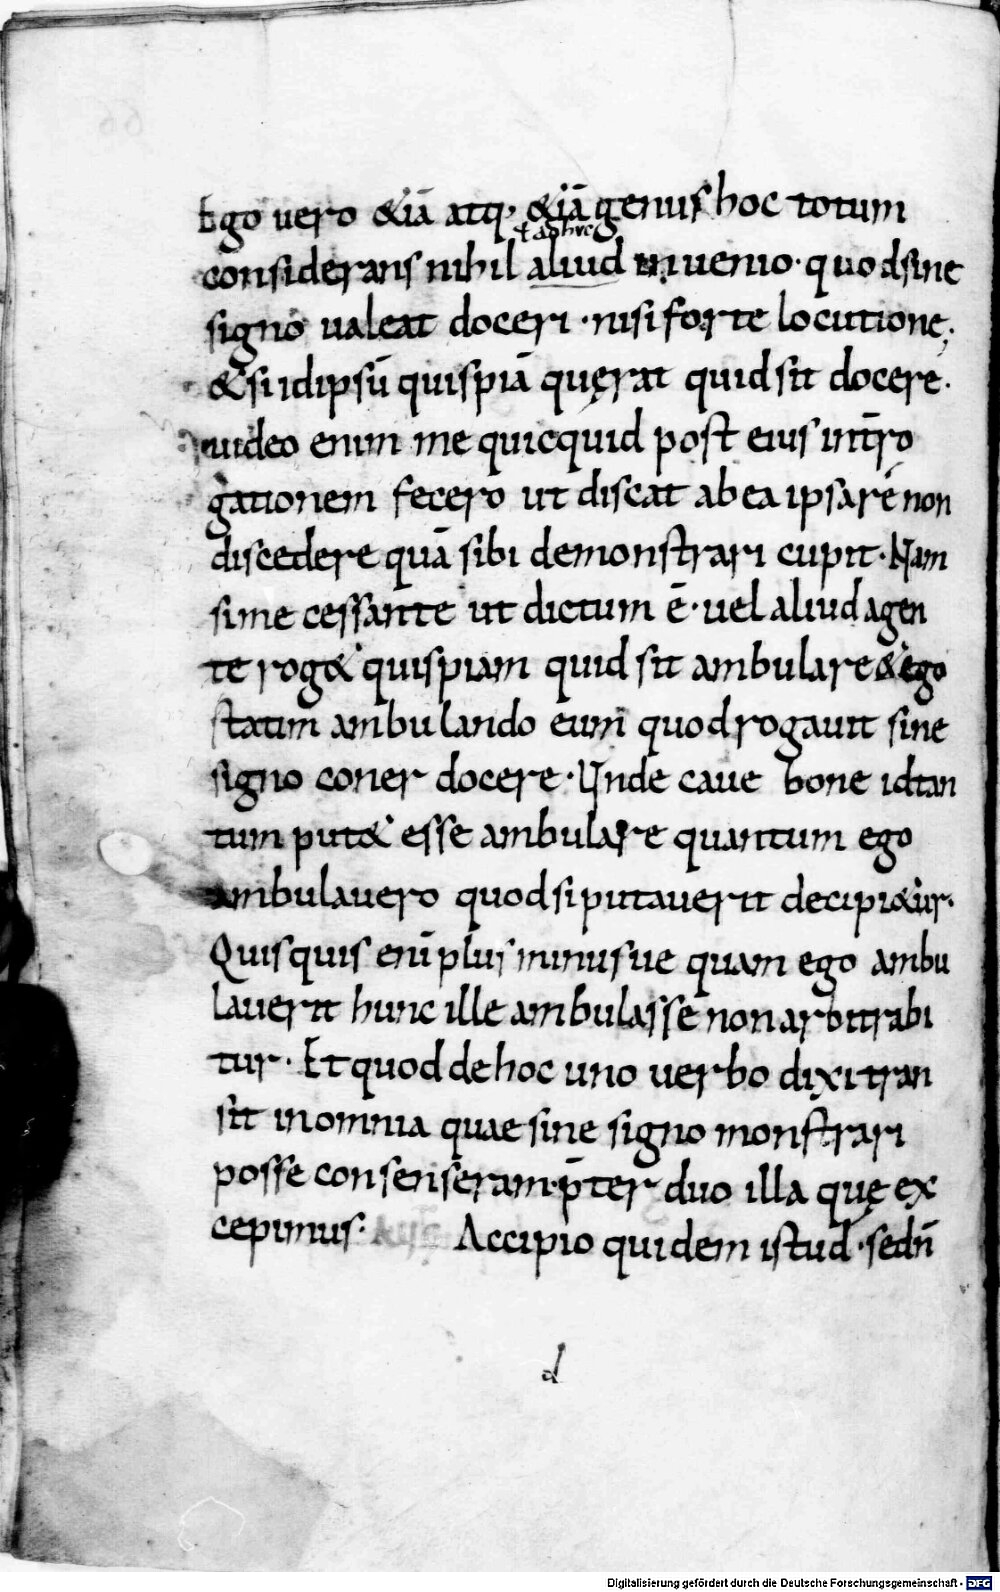 Ego vero &iā atq· &iā genus hoc totum
ł adhuc
considerans nihil aliud inuenio· quod sine
signo ualeat doceri · nisi forte locutione;
& si idipsū quispiā quęrat quid sit docere·
uideo enim me quicquid post eius int̄ro
gationem fecero ut discat ab ea ipsa rē non
discedere quā sibi demonstrari cupit· Nam
si me cessante ut dictum ē· uel aliud agen
te rog& quispiam quid sit ambulare & ego
statim ambulando eum quod rogauit sine
signo coner docere· Unde caue bone id tan
tum put& esse ambulare quantum ego
ambulauero quod si putauerit decipi&ur·
Quisquis enī plus minusue quam ego ambu
lauerit hunc ille ambulasse non arbitrabi
tur· Et quod de hoc uno uerbo dixi tran
sit in omnia quae sine signo monstrari
posse consenseram p̄ter duo illa quę ex
cepimus· Accipio quidem istud· sed n̄
d
Digitalisierung gefördert durch die Deutsche Forschungsgemeinschaft - DFG